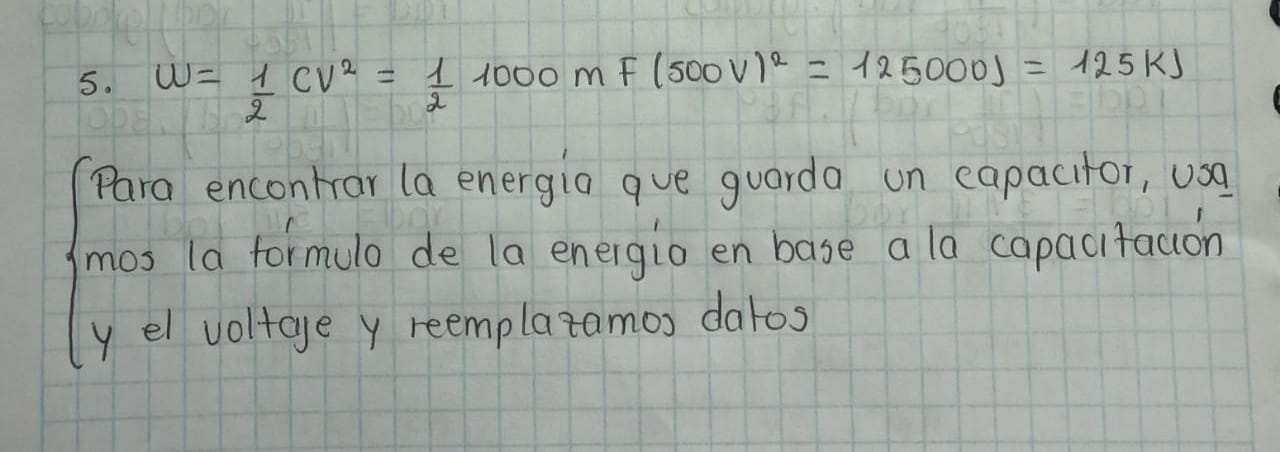 5. W= 1/2 CV² = 1/2 1000 m F (500V)² = 125000J = 125KJ
Para encontrar la energía que guarda un capacitor, usa
mos la fórmula de la energía en base a la capacitación
y el voltaje y reemplazamos datos